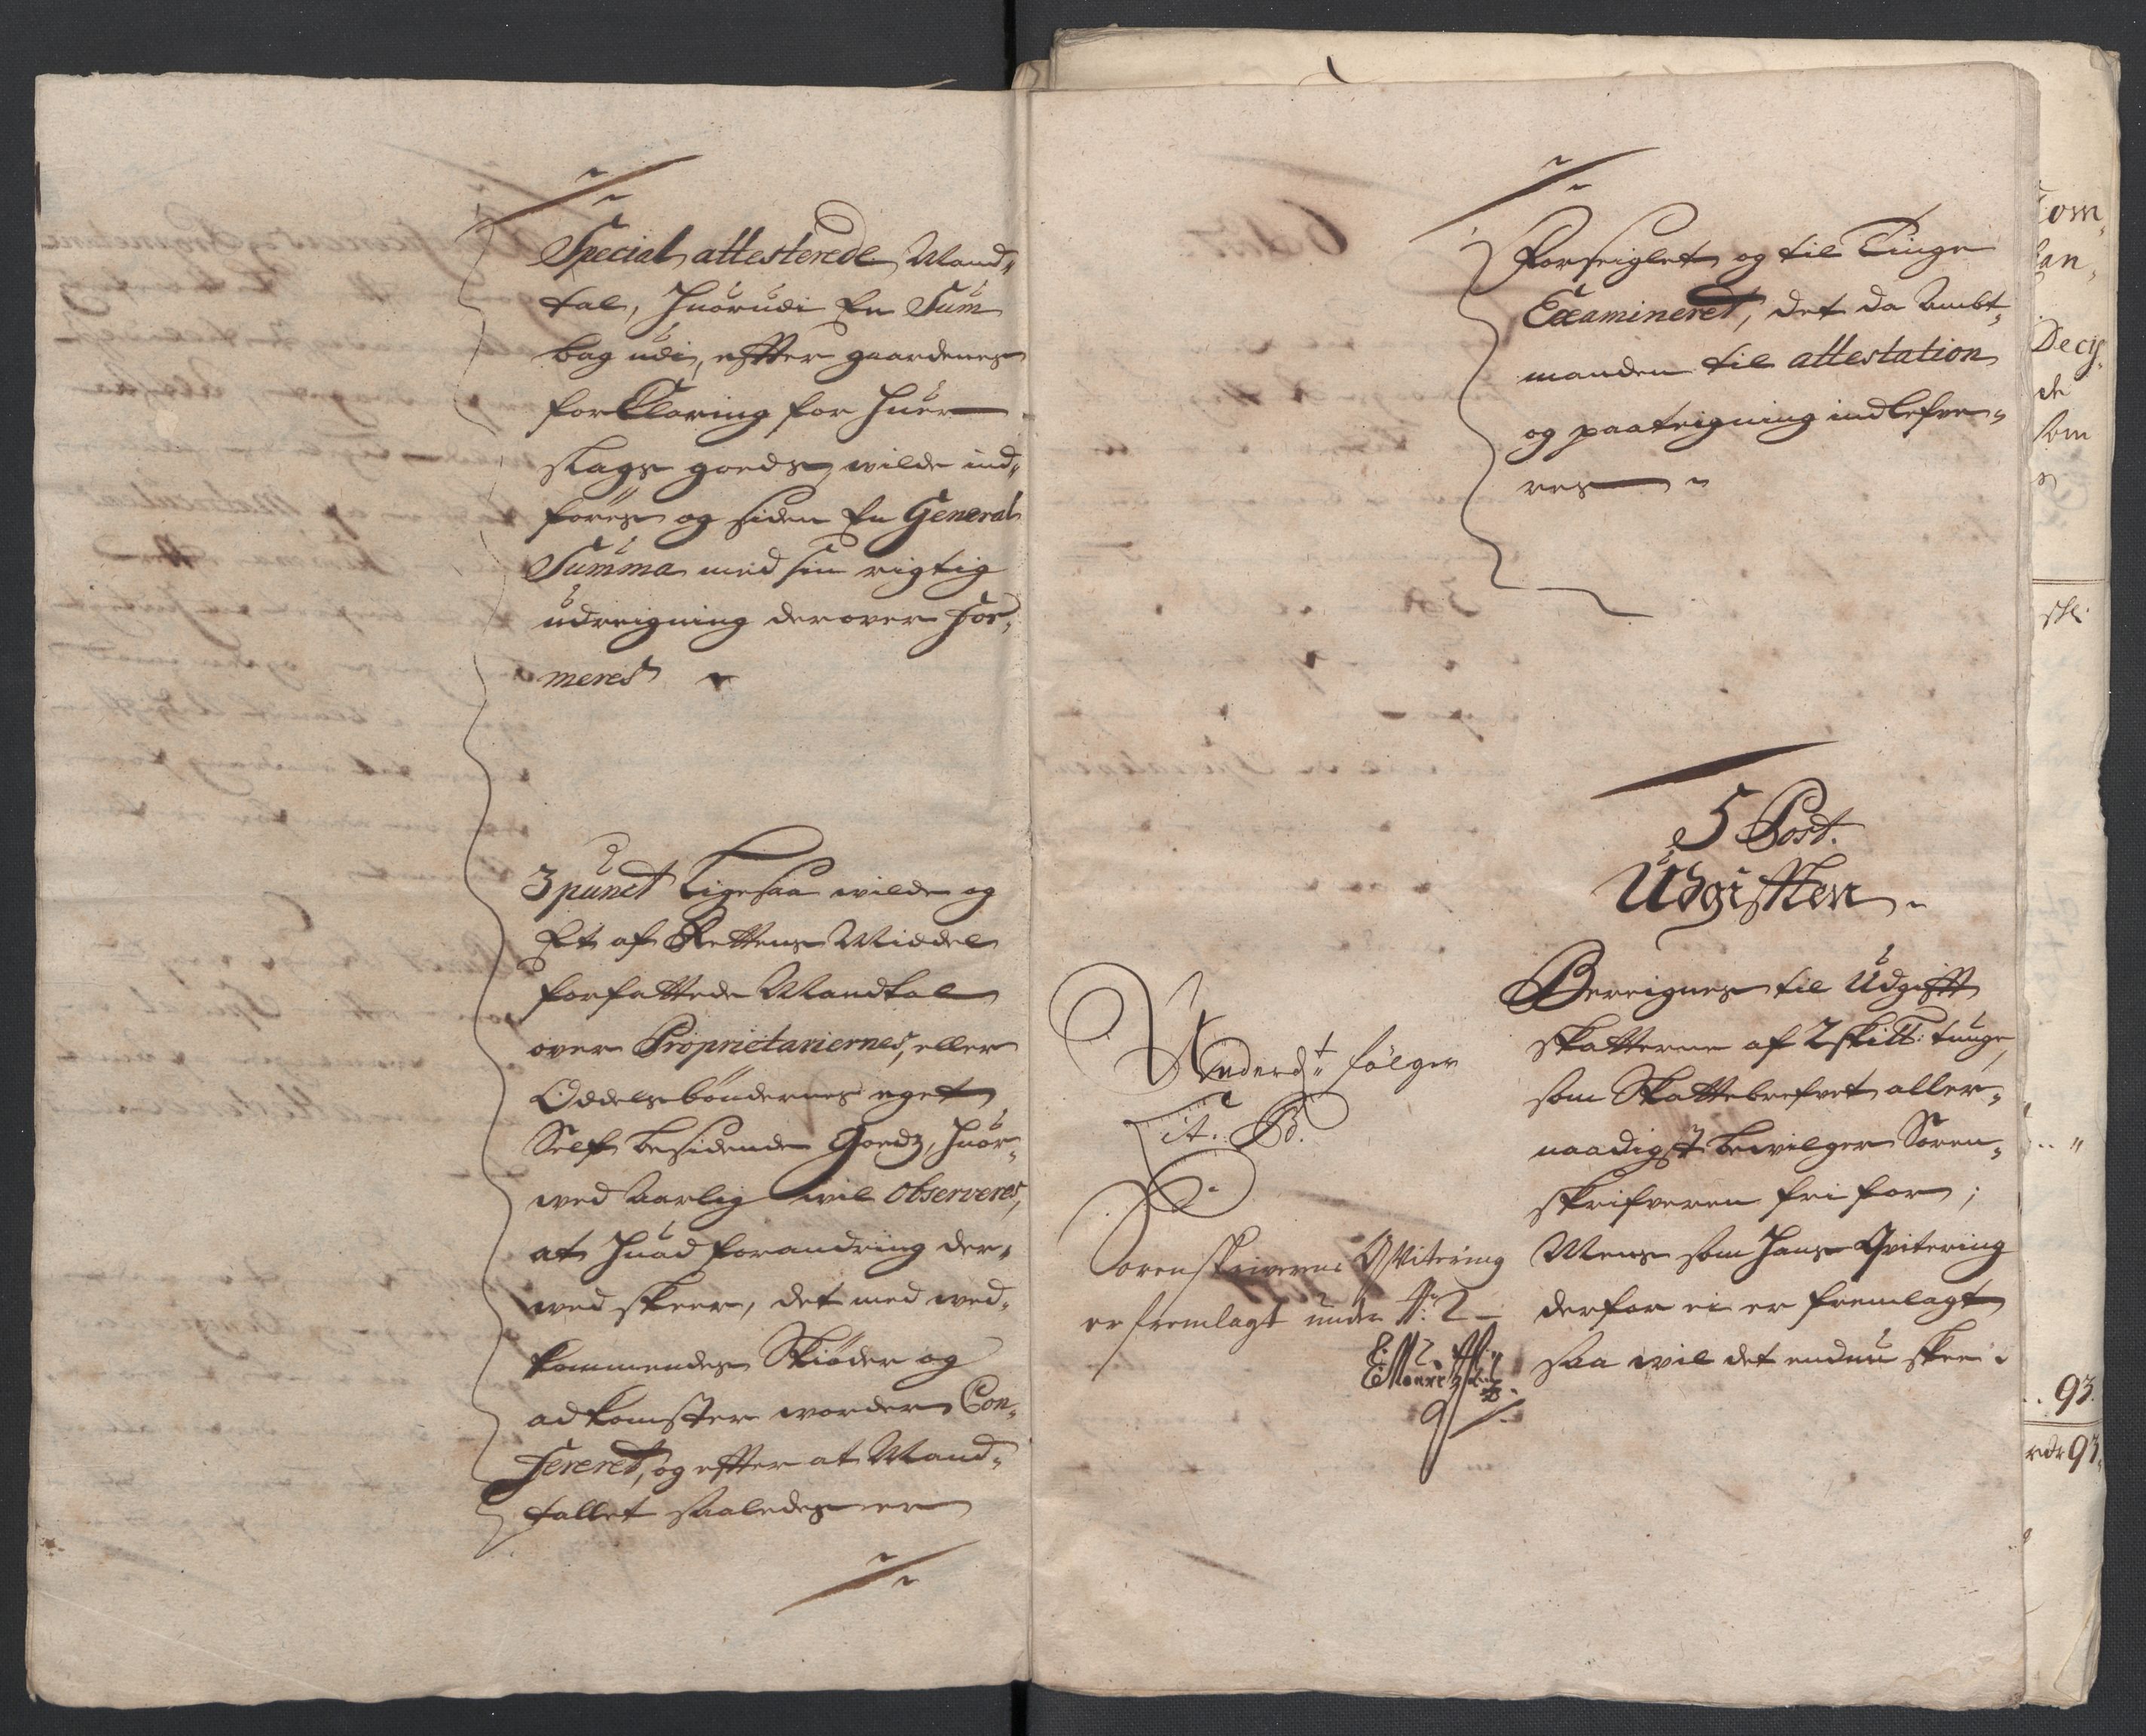 Special attesterede Mand„
tal, huorudi En Sum
bag udi, effter gaardenes
forklaring for huer
slags goeds, wilde ind„
föres og siden En General
Summa med sin rigtig
udreigning derover for„
meres
3 punct Ligesaa wilde og
Et af Rettens Middel
forfattede Mandtal
over Proprietariernes, eller
Oddelsbönderness eget
Self besidende Goedz, huor„
wed aarlig wil observeres,
at huad forandring der„
wed skeer, det med wed„
kommendes Skiöder og
adkomster worder Con„
fereret, og effter at Mand„
tallet saaledes er
Forseiglet og til Tinge
Examineret, det da Ambt„
manden til attestation
og paateigning indlefve„
res
5 Post.
Udgifften
Bereignes til Udgifft
skatterne af 2 skill: tunge,
som Skattebrefvet aller„
naadigst bewilger Soren„
skrifveren fri for;
Mens som hans Qvitering
derfor ei er fremlagt
saa wil det endnu skee
fölger
Lit. B.
Sorenskriverens Qvitering
er fremlagt under N: 2
Com„
an„
Decis„
de
som
skl:
93.
93„